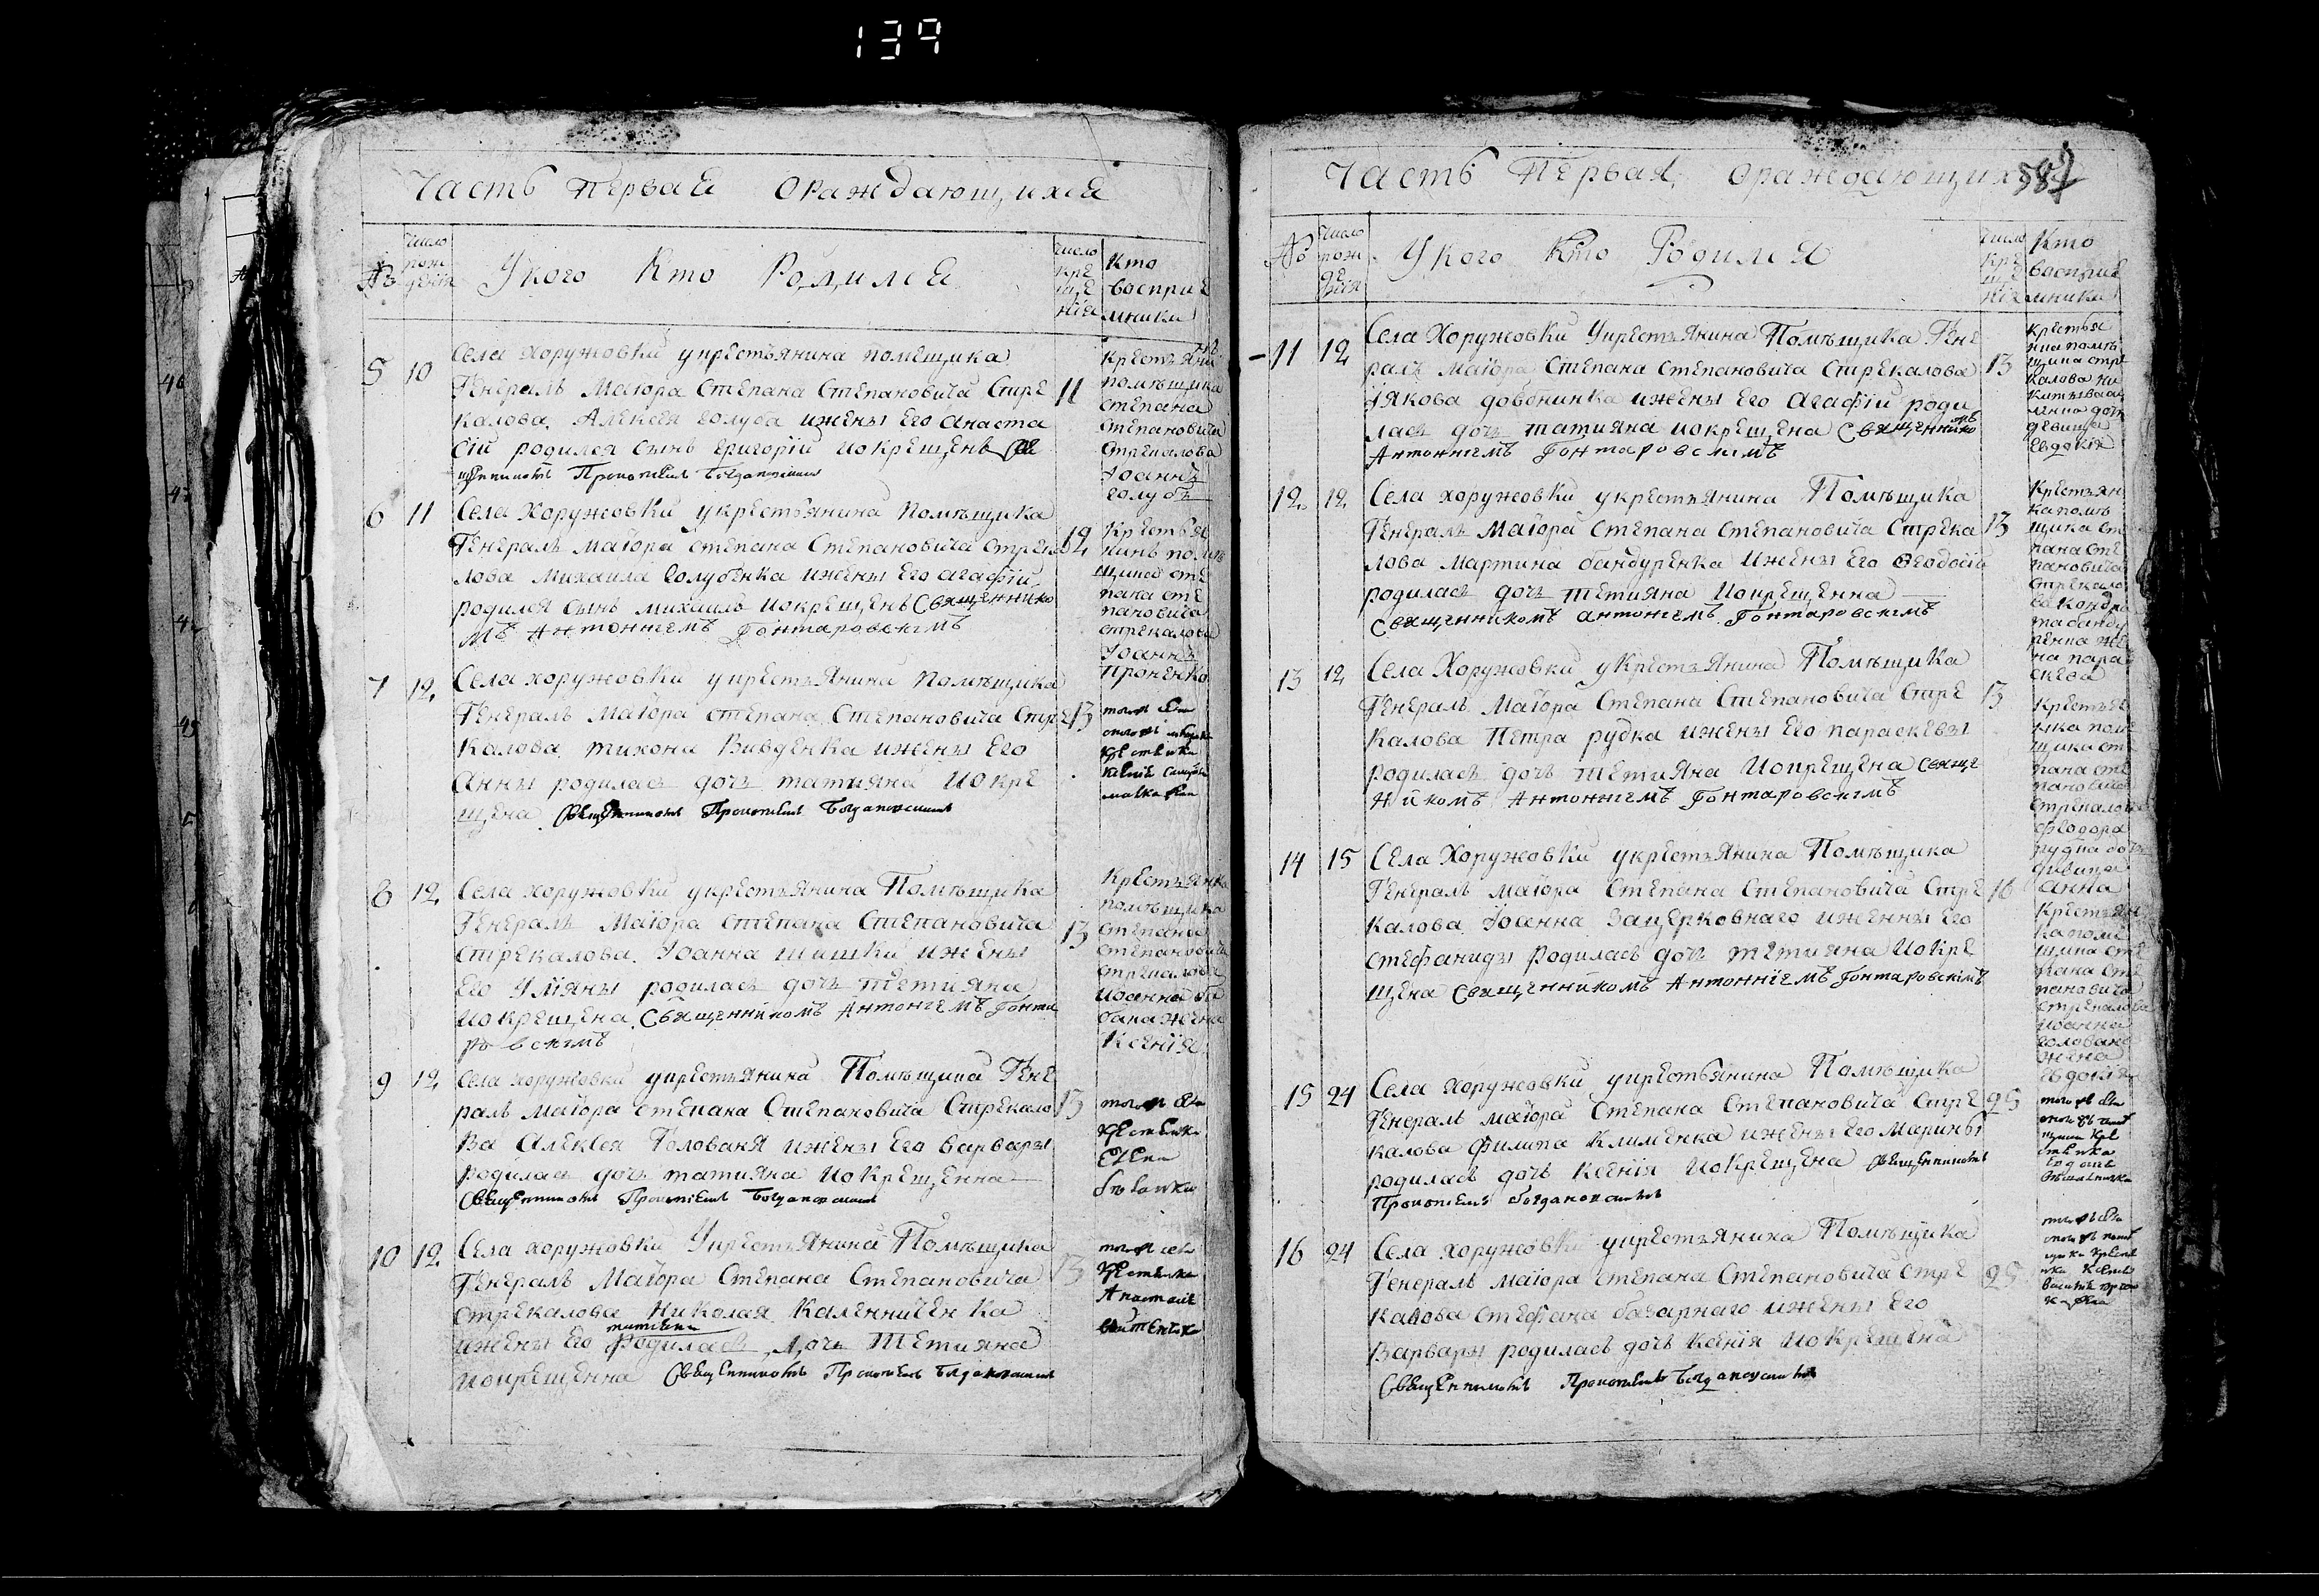 139
Часть первая ораждающихся
№
Число рож дения
У кого Кто Родился
Число кре ще нія
Кто восприе мники
5 10
Села Хоружовки у крестьянина помещика
Генералъ Маіора Степана Степановича Стре
калова Алексея голуба ижены Его Анаста
сіи родился сынъ григорій иокрещенъ Свя
щенникомъ Прокопіемъ Богдановскимъ
11
помѣщика
степана
степановича
стрекалова
Іоаннъ
голубъ
6 11
Села Хоружовки укрестьянина помѣщика
Генералъ маіора степана Степановича Стрека
лова Михаила Голубенка ижены Его агафіи
родился сынъ михаилъ иокрещенъ Священнико
мъ Антоніемъ Гонтаровскімъ
12
Крестья
нинъ помѣ
щика сте
пана сте
пановича
стрекалова
Іоаннъ
Проненко
7 12
Села хоружовки укрестьянина помѣщика
Генералъ Маіора степана Степановича Стре
калова тихона Вивденка ижены Его
Анны родилась дочь татияна иокре
щена Священникомъ Прокопіемъ Богдановскимъ
13
8 12
Села хоружовки укрестьянина Помѣщика
Генералъ Маіора степана Степановича
стрекалова Іоанна шишки ижены
Его Уліяны родилась дочь тетияна
иокрещена Священникомъ Антоніемъ Гонта
ровскімъ
13
Крестьянка
помѣщика
степана
степановича
стрекалова
Иоанна
жена
Ксенія
9 12
Села хоружовки укрестьянина Помѣщика Гене
ралъ маіора степана Степановича Стрекало
ва Алексея Голованя ижены Его варвары
родилась дочь татияна иокрещенна
Священникомъ Прокопіемъ Богдановскимъ
13
10 12
Села хоружовки Укрестьянина Помѣщика
Генералъ Маіора Степана Степановича
стрекалова Николая Каленниченка
ижены Его татияны родилась дочь Тетияна
иокрещенна Священникомъ Прокопіемъ Богдановскимъ
13
Часть Первая ораждающихся
587
№
Число рож де нія
У кого Кто Родился
Число кре ще нія
Кто восприе мники
11 12
Села Хоружовки Укрестьянина Помѣщика Гене
ралъ маіора Степана Степановича Стрекалова
Іякова довбнинка ижены Его Агафіи роди
лась дочь татияна иокрещена Священникомъ
Антоніемъ Гонтаровскімъ
13
Крестья
нина помѣ
щика стре
калова
дочь
девица
Евдокія
12 12
Села хоружовки укрестьянина Помѣщика
Генералъ Маіора Степана Степановича Стрека
лова Мартина бандуренка ижены Его Феодосіи
родилась дочь тетияна Иокрещенна
Священникомъ антоніемъ Гонтаровскімъ
13
Крестьян
ка помѣ
щика сте
пана сте
пановича
стрекало
ва Кондра
та банду
ренка же
на пара
скева
13 12
Села Хоружовки уКрестьянина Помѣщика
Генералъ Маіора Степана Степановича Стре
калова Петра рудка ижены Его параскевы
родилась дочь тетияна Иокрещена Свяще
нникомъ Антоніемъ Гонтаровскімъ
13
Крестья
нка помѣ
щика сте
пана сте
пановича
стрекалова
феодора
рудка дочь
девица
анна
14 15
Села Хоружовки укрестьянина Помѣщика
Генералъ маіора Степана Степановича Стре
калова Іоанна Зацерковнаго иженны его
стефаниды родилась дочь тетияна Иокре
щена Священникомъ Антоніемъ Гонтаровскімъ
16
Крестьян
ка помѣ
щика сте
пана сте
пановича
стрекалова
иоанна
голована
жена
Евдокія
15 24
Села хоружовки укрестьянина Помѣщика
Генералъ маіора Степана Степановича Стре
калова Филипа Клименка ижены Его Марины
родилась дочь Ксенія Иокрещена Священникомъ
Прокопіемъ Богдановскимъ
25
16 24
Села хоружовки укрестьянина Помѣщика
Генералъ маіора степана Степановича Стре
калова Стефана базарнаго ижены Его
Варвары родилась дочь Ксенія Иокрещена
Священникомъ Прокопіемъ Богдановскимъ
25